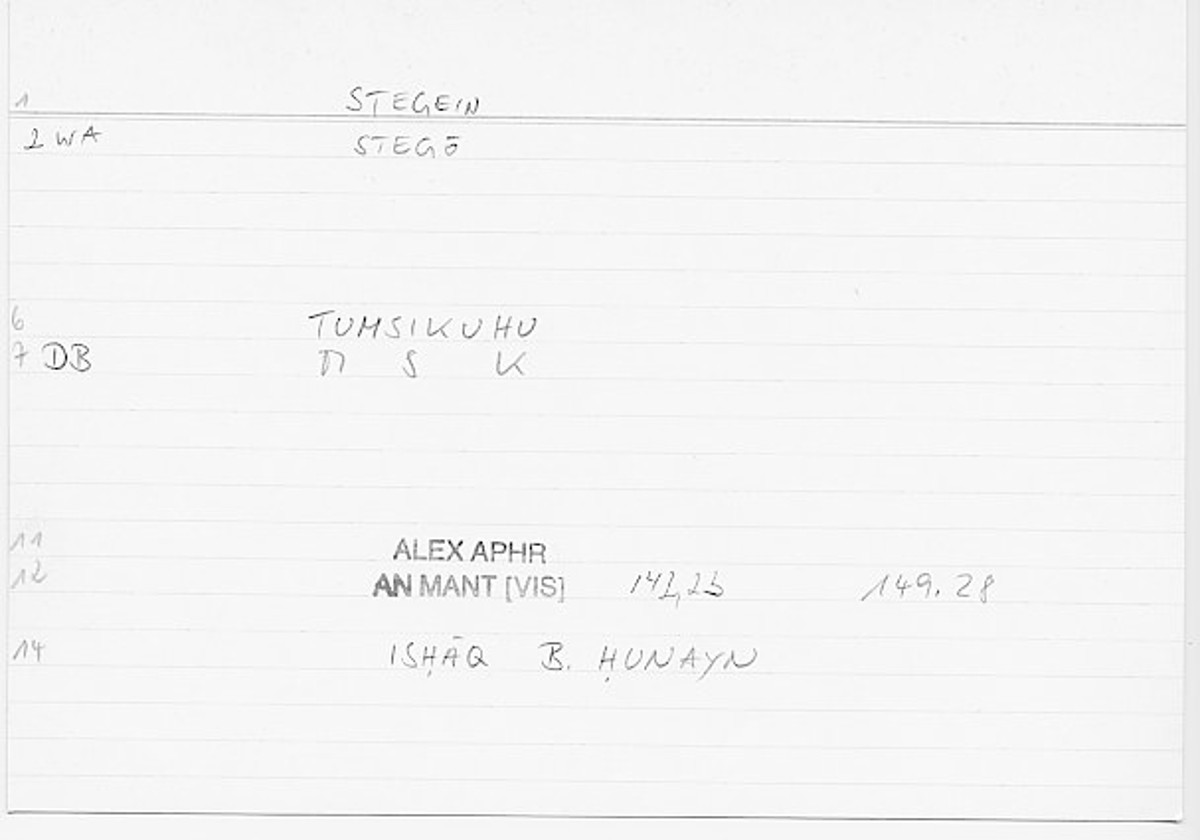 1 STEGEIN
2 WA STEGŌ
6 TUMSIKUHU
7 DB M S K
11 ALEX APHR
12 AN MANT [VIS] 149.28
14 ISḤĀQ B. ḤUNAYN